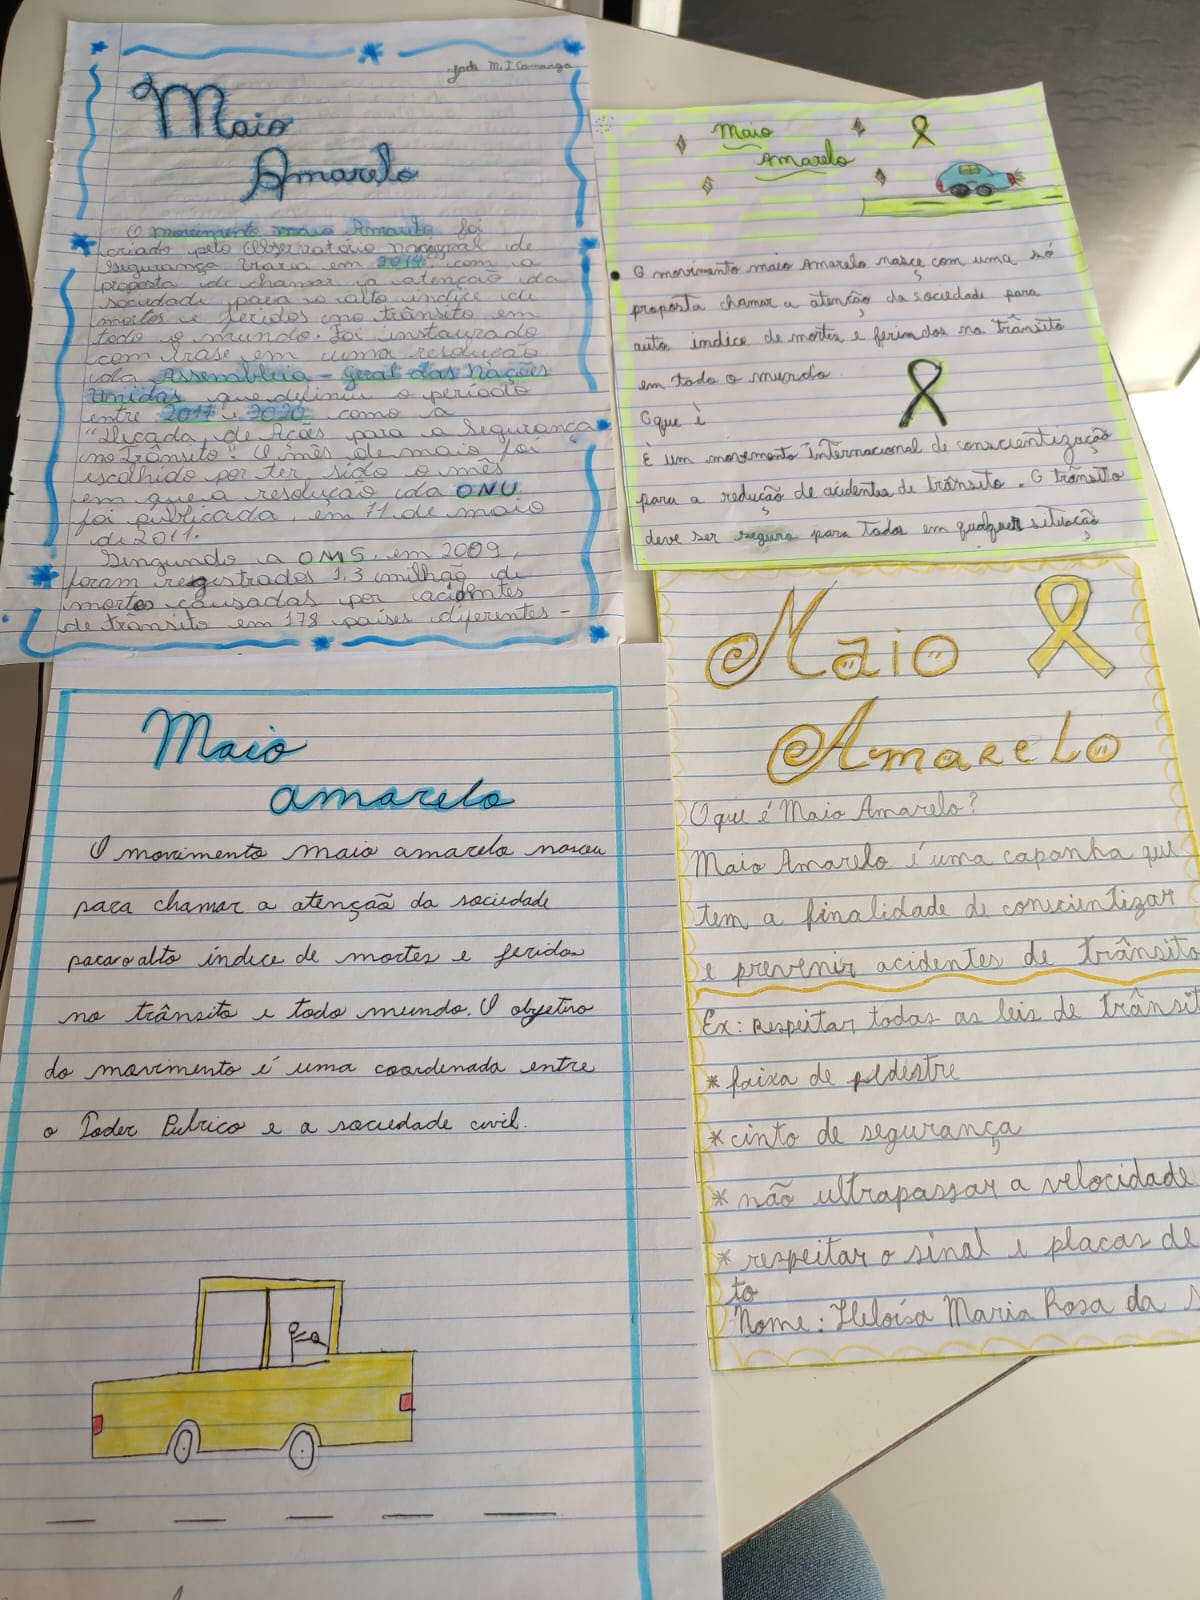 M. I Camargo
Maio
Amarelo
O movimento maio Amarelo foi
criado pelo Observatório nacional de
segurança viária em 2014 com a
proposta de chamar a atenção da
sociedade para o alto índice de
mortes e feridos no trânsito em
todo o mundo. Foi instaurado
com base em uma resolução
da Assembleia - Geral das Nações
Unidas que definiu o período
entre e 2020 como a
"Decada de Ações para a Segurança
no Trânsito". O mês de maio foi
escolhido por ter sido o mês
em que a resolução da ONU
foi publicada, em 11 de maio
de 2011.
Singundo a OMS, em 2009,
foram registrados 1,3 milhão de
mortes causadas por acidentes
de trânsito em 178 países diferentes -
Maio
Amarelo
O movimento maio Amarelo nasce com uma só
proposta chamar a atenção da sociedade para
auto indice de mortes e ferimdos no trânsito
em todo o mundo.
O que è
È um movemento internacional de conscientização
para a redução de acidentes de trânsito. O trânsito
deve ser seguro para todos em qualquer situação
Maio
amarelo
O movimento maio amarelo nasceu
para chamar a atenção da sociedade
para o alto índice de mortes e feridos
no trânsito e todo mundo. O objetivo
do movimento é uma coordenada entre
o Poder Pubrico e a sociedade civil.
Maio
Amarelo
O que é Maio Amarelo?
Maio Amarelo é uma capanha que
tem a finalidade de conscientizar
e prevenir acidentes de trânsito
Ex: Respeitar todas as leis de trânsit
* faixa de pedestre
* cinto de segurança
* não ultrapassar a velocidade
* respeitar o sinal e placas de
to
Nome: Heloísa Maria Rosa da S